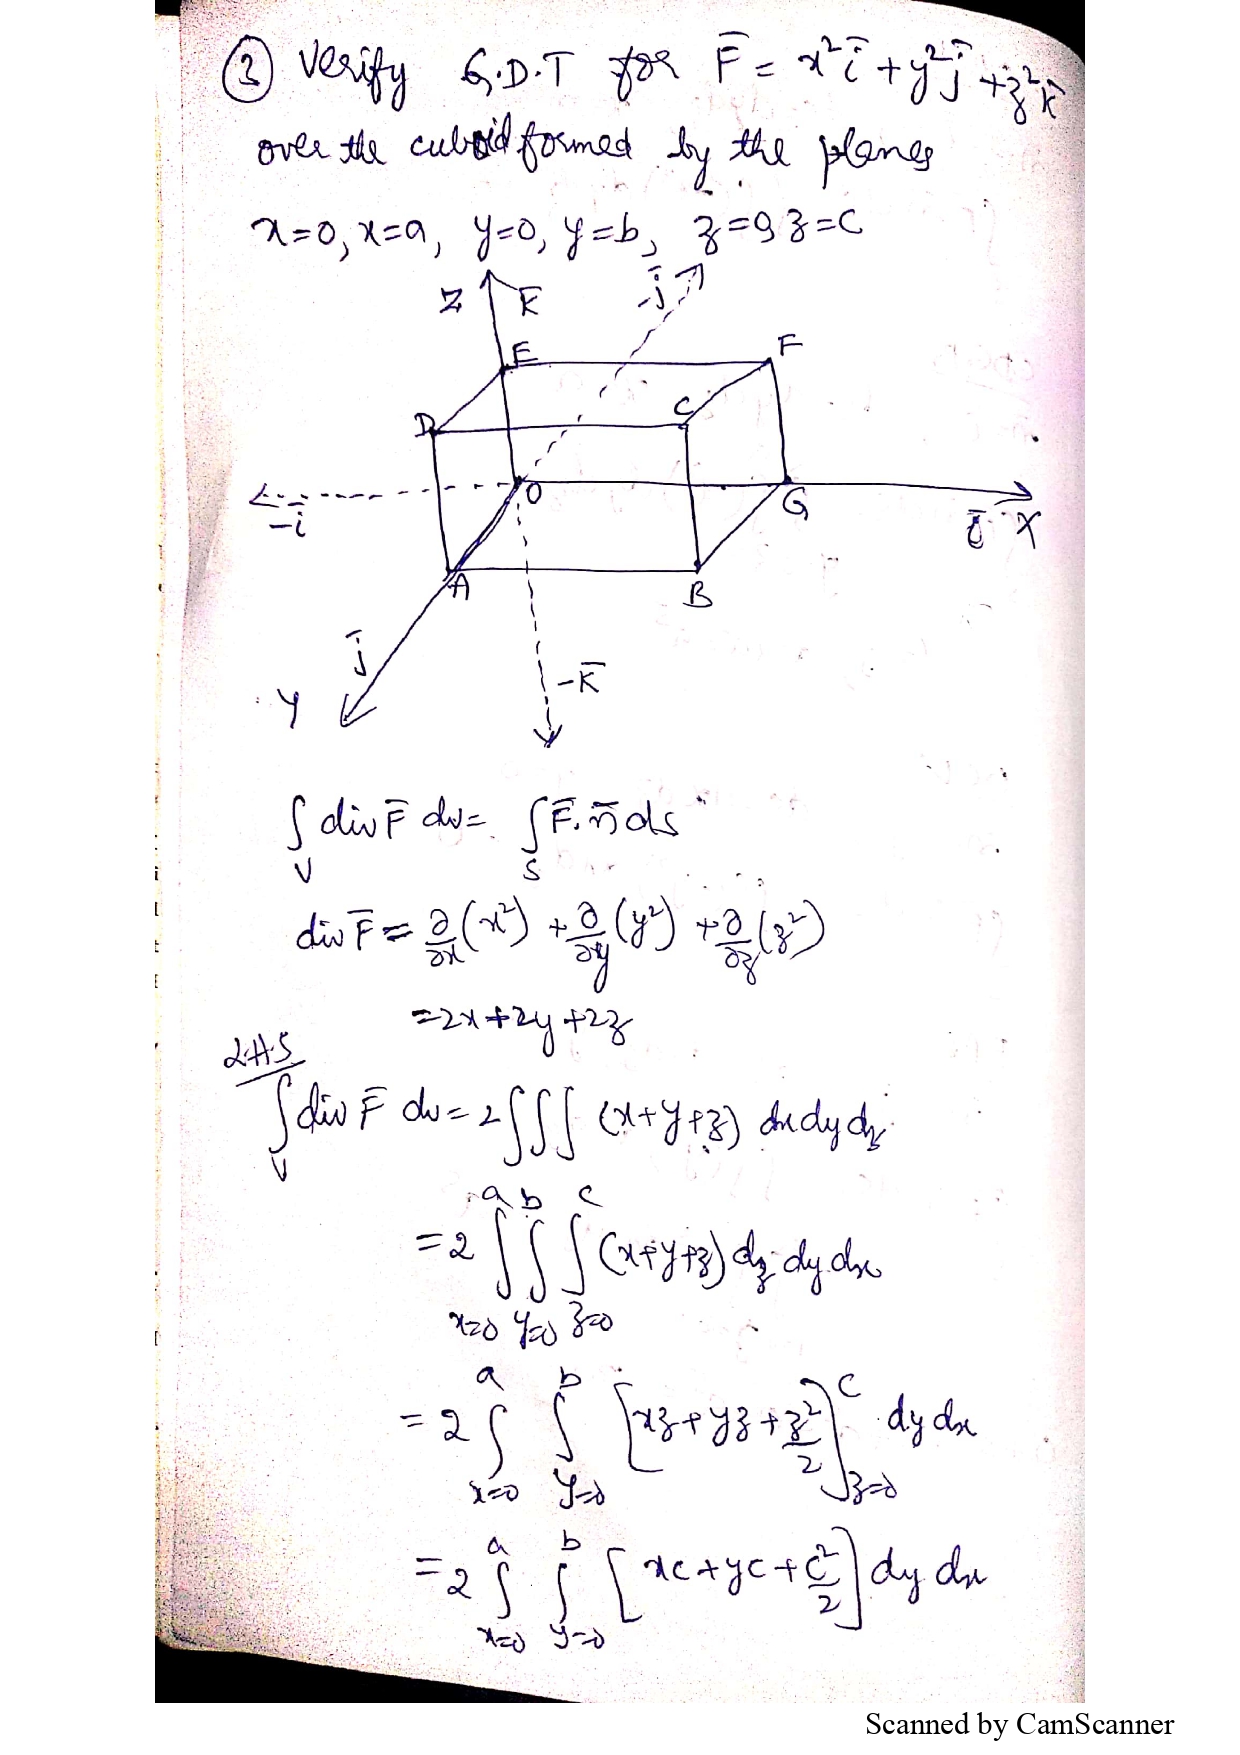 ③ Verify G.D.T for F̅ = x²i̅ + y²j̅ + z²k̅
over the cuboid formed by the planes
x=0, x=a, y=0, y=b, z=0, z=c
Z K̅ -j̅
E F
D C
O G
-i̅ i̅ X
A B
j̅
Y -K̅
∫_V div F̅ dv = ∫_S F̅.n̅ ds
div F̅ = ∂/∂x (x²) + ∂/∂y (y²) + ∂/∂z (z²)
= 2x + 2y + 2z
L.H.S
∫_V div F̅ dv = 2∫∫∫ (x+y+z) dx dy dz
= 2 ∫_{x=0}^{a} ∫_{y=0}^{b} ∫_{z=0}^{c} (x+y+z) dz dy dx
= 2 ∫_{x=0}^{a} ∫_{y=0}^{b} [xz + yz + z²/2]_{z=0}^{c} dy dx
= 2 ∫_{x=0}^{a} ∫_{y=0}^{b} [xc + yc + c²/2] dy dx
Scanned by CamScanner